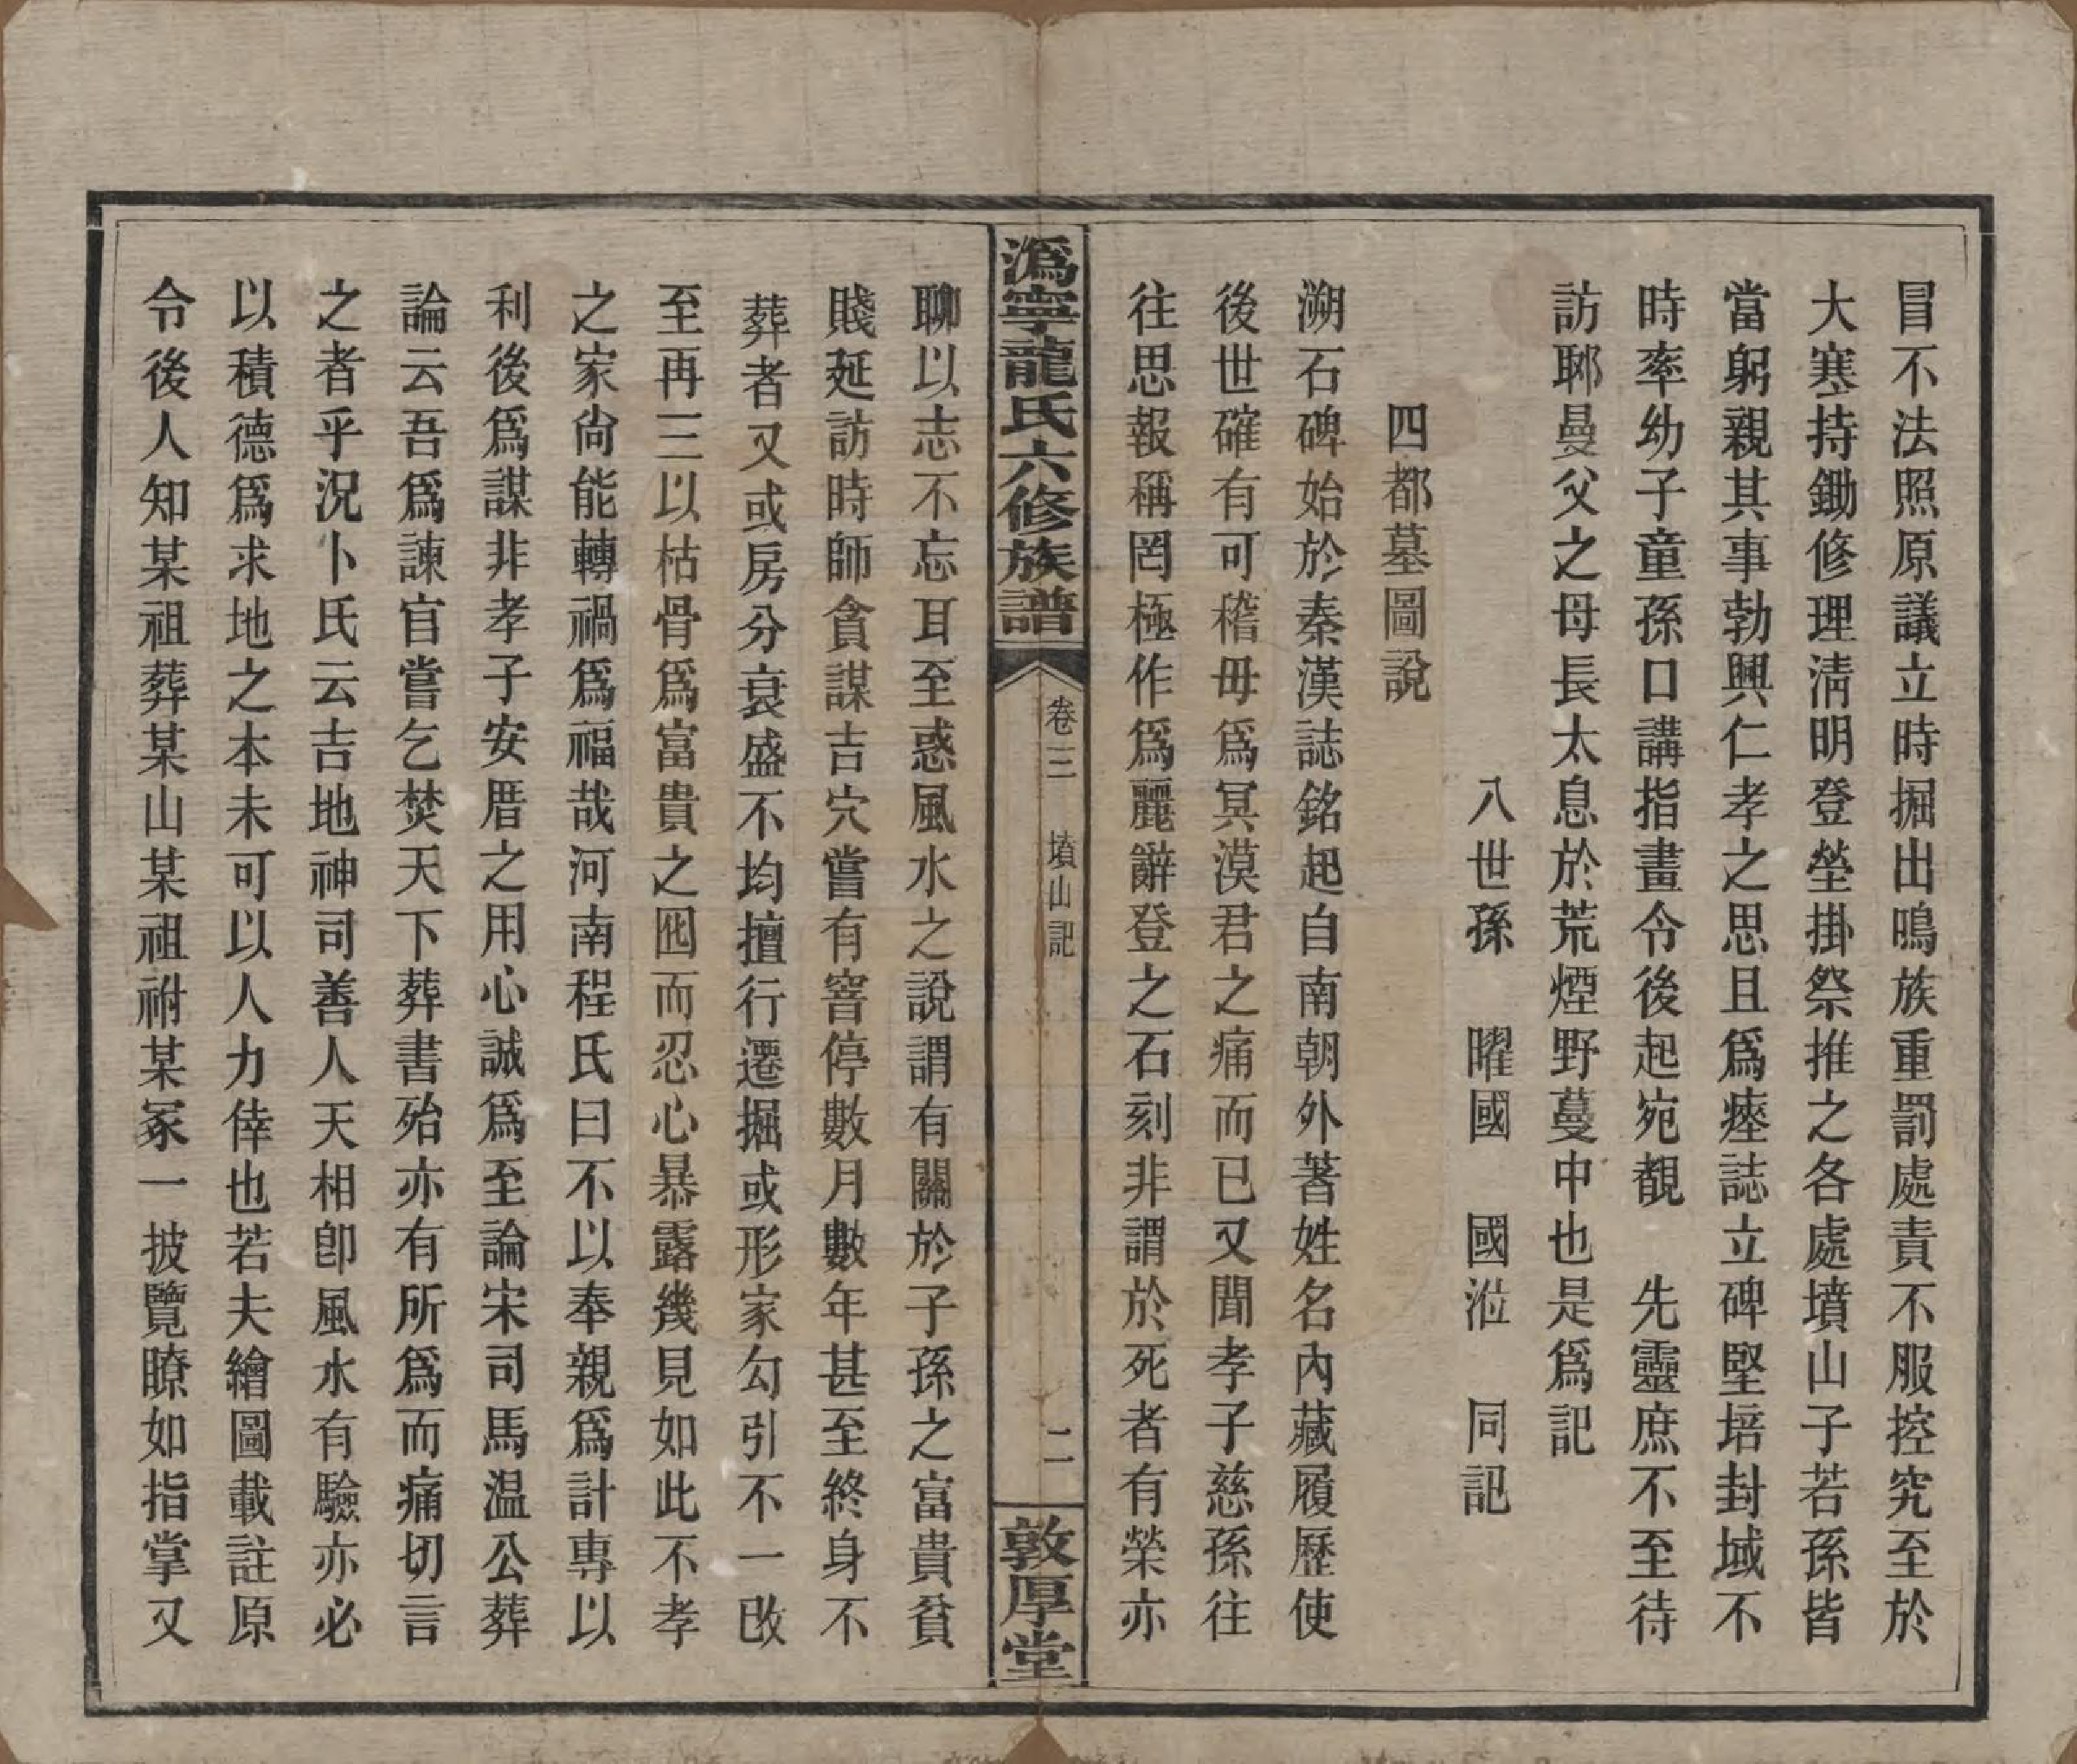 冒不法照原議立時掘出鳴族重罰處責不服控究至於
大寒持鋤修理淸明登塋掛祭推之各處墳山子若孫皆
當躬親其事勃興仁孝之思且爲瘞誌立碑堅培封域不
時率幼子童孫口講指畫令後起宛覩　先靈庶不至待
訪郰曼父之母長太息於荒煙野蔓中也是爲記
八世孫　曜國　國涖　同記
四都墓圖說
溯石碑始於秦漢誌銘起自南朝外著姓名內藏履歷使
後世確有可稽毋爲冥漠君之痛而已又聞孝子慈孫往
往思報稱罔極作爲麗辭登之石刻非謂於死者有榮亦
潙寧龍氏六修族譜
卷三　墳山記
二
敦厚堂
聊以志不忘耳至惑風水之說謂有關於子孫之富貴貧
賤延訪時師貪謀吉穴嘗有窨停數月數年甚至終身不
葬者又或房分衰盛不均擅行遷掘或形家勾引不一改
至再三以枯骨爲富貴之囮而忍心暴露幾見如此不孝
之家尙能轉禍爲福哉河南程氏曰不以奉親爲計專以
利後爲謀非孝子安厝之用心誠爲至論宋司馬温公葬
論云吾爲諫官嘗乞焚天下葬書殆亦有所爲而痛切言
之者乎況卜氏云吉地神司善人天相卽風水有驗亦必
以積德爲求地之本未可以人力倖也若夫繪圖載註原
令後人知某祖葬某山某祖祔某冢一披覽瞭如指掌又